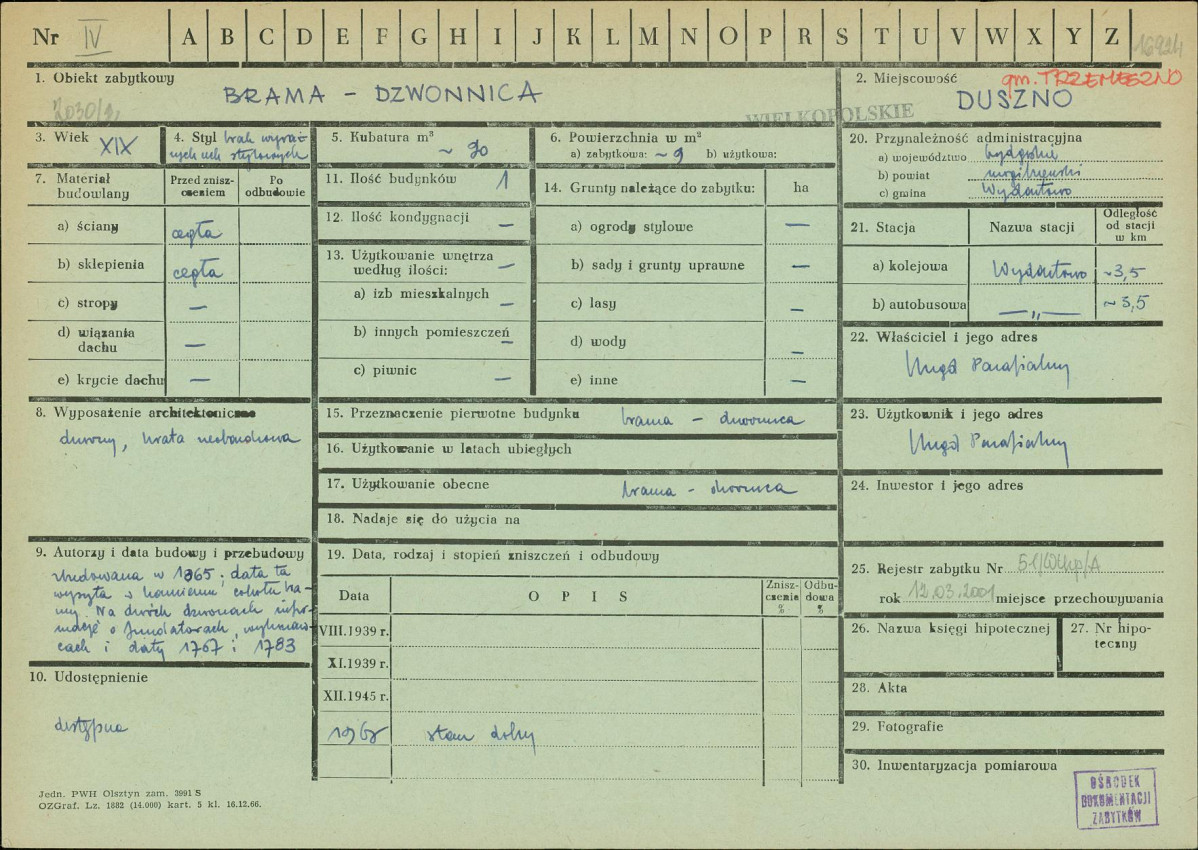 Nr IV A B C D E F G H I J K L M N O P R S T U V W X Y Z 16924
1. Obiekt zabytkowy
BRAMA – DZWONNICA
2030/2
2. Miejscowość gm. TRZEMESZNO
DUSZNO
WIELKOPOLSKIE
3. Wiek XIX
4. Styl brak wyraź-
nych cech stylowych
5. Kubatura m³
~ 90
6. Powierzchnia w m²
a) zabytkowa: ~ 9 b) użytkowa:
7. Materiał budowlany
Przed znisz-
czeniem
Po
odbudowie
a) ściany cegła
b) sklepienia cegła
c) stropy —
d) wiązania
dachu —
e) krycie dachu —
8. Wyposażenie architektoniczne
dzwony, krata
9. Autorzy i data budowy i przebudowy
zbudowana w 1865; data ta
wyryta w kamieniu cokołu bra-
my. Na dwóch dzwonach infor-
macje o fundatorach, wykonaw-
cach i daty 1767 i 1783
10. Udostępnienie
dostępna
11. Ilość budynków 1
12. Ilość kondygnacji —
13. Użytkowanie wnętrza
według ilości: —
a) izb mieszkalnych —
b) innych pomieszczeń —
c) piwnic —
14. Grunty należące do zabytku: ha
a) ogrody stylowe —
b) sady i grunty uprawne —
c) lasy —
d) wody —
e) inne —
15. Przeznaczenie pierwotne budynku brama – dzwonnica
16. Użytkowanie w latach ubiegłych
17. Użytkowanie obecne brama – dzwonnica
18. Nadaje się do użycia na
19. Data, rodzaj i stopień zniszczeń i odbudowy
Data OPIS Znisz-
czenie
%
Odbu-
dowa
%
VIII.1939 r.
XI.1939 r.
XII.1945 r.
1968 stan dobry
20. Przynależność administracyjna
a) województwo bydgoskie
b) powiat mogileński
c) gmina Wydartowo
21. Stacja Nazwa stacji Odległość
od stacji
w km
a) kolejowa Wydartowo ~3,5
b) autobusowa —„— ~3,5
22. Właściciel i jego adres
Urząd Parafialny
23. Użytkownik i jego adres
Urząd Parafialny
24. Inwestor i jego adres
25. Rejestr zabytku Nr 51/Wlkp/A
rok 12.03.2001 miejsce przechowywania
26. Nazwa księgi hipotecznej
27. Nr hipo-
teczny
28. Akta
29. Fotografie
30. Inwentaryzacja pomiarowa
OŚRODEK
DOKUMENTACJI
ZABYTKÓW
Jedn. PWH Olsztyn zam. 3991 S
OZGraf. Lz. 1882 (14.000) kart. 5 kl. 16.12.66.